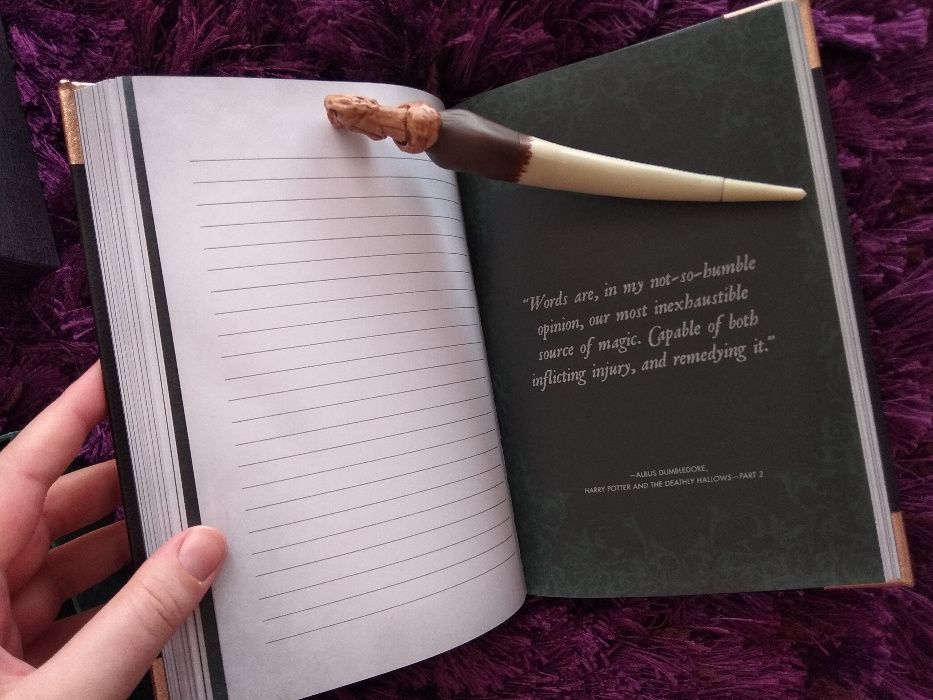 “Words are, in my not-so-humble
opinion, our most inexhaustible
source of magic. Capable of both
inflicting injury, and remedying it.”
—ALBUS DUMBLEDORE,
HARRY POTTER AND THE DEATHLY HALLOWS—PART 2